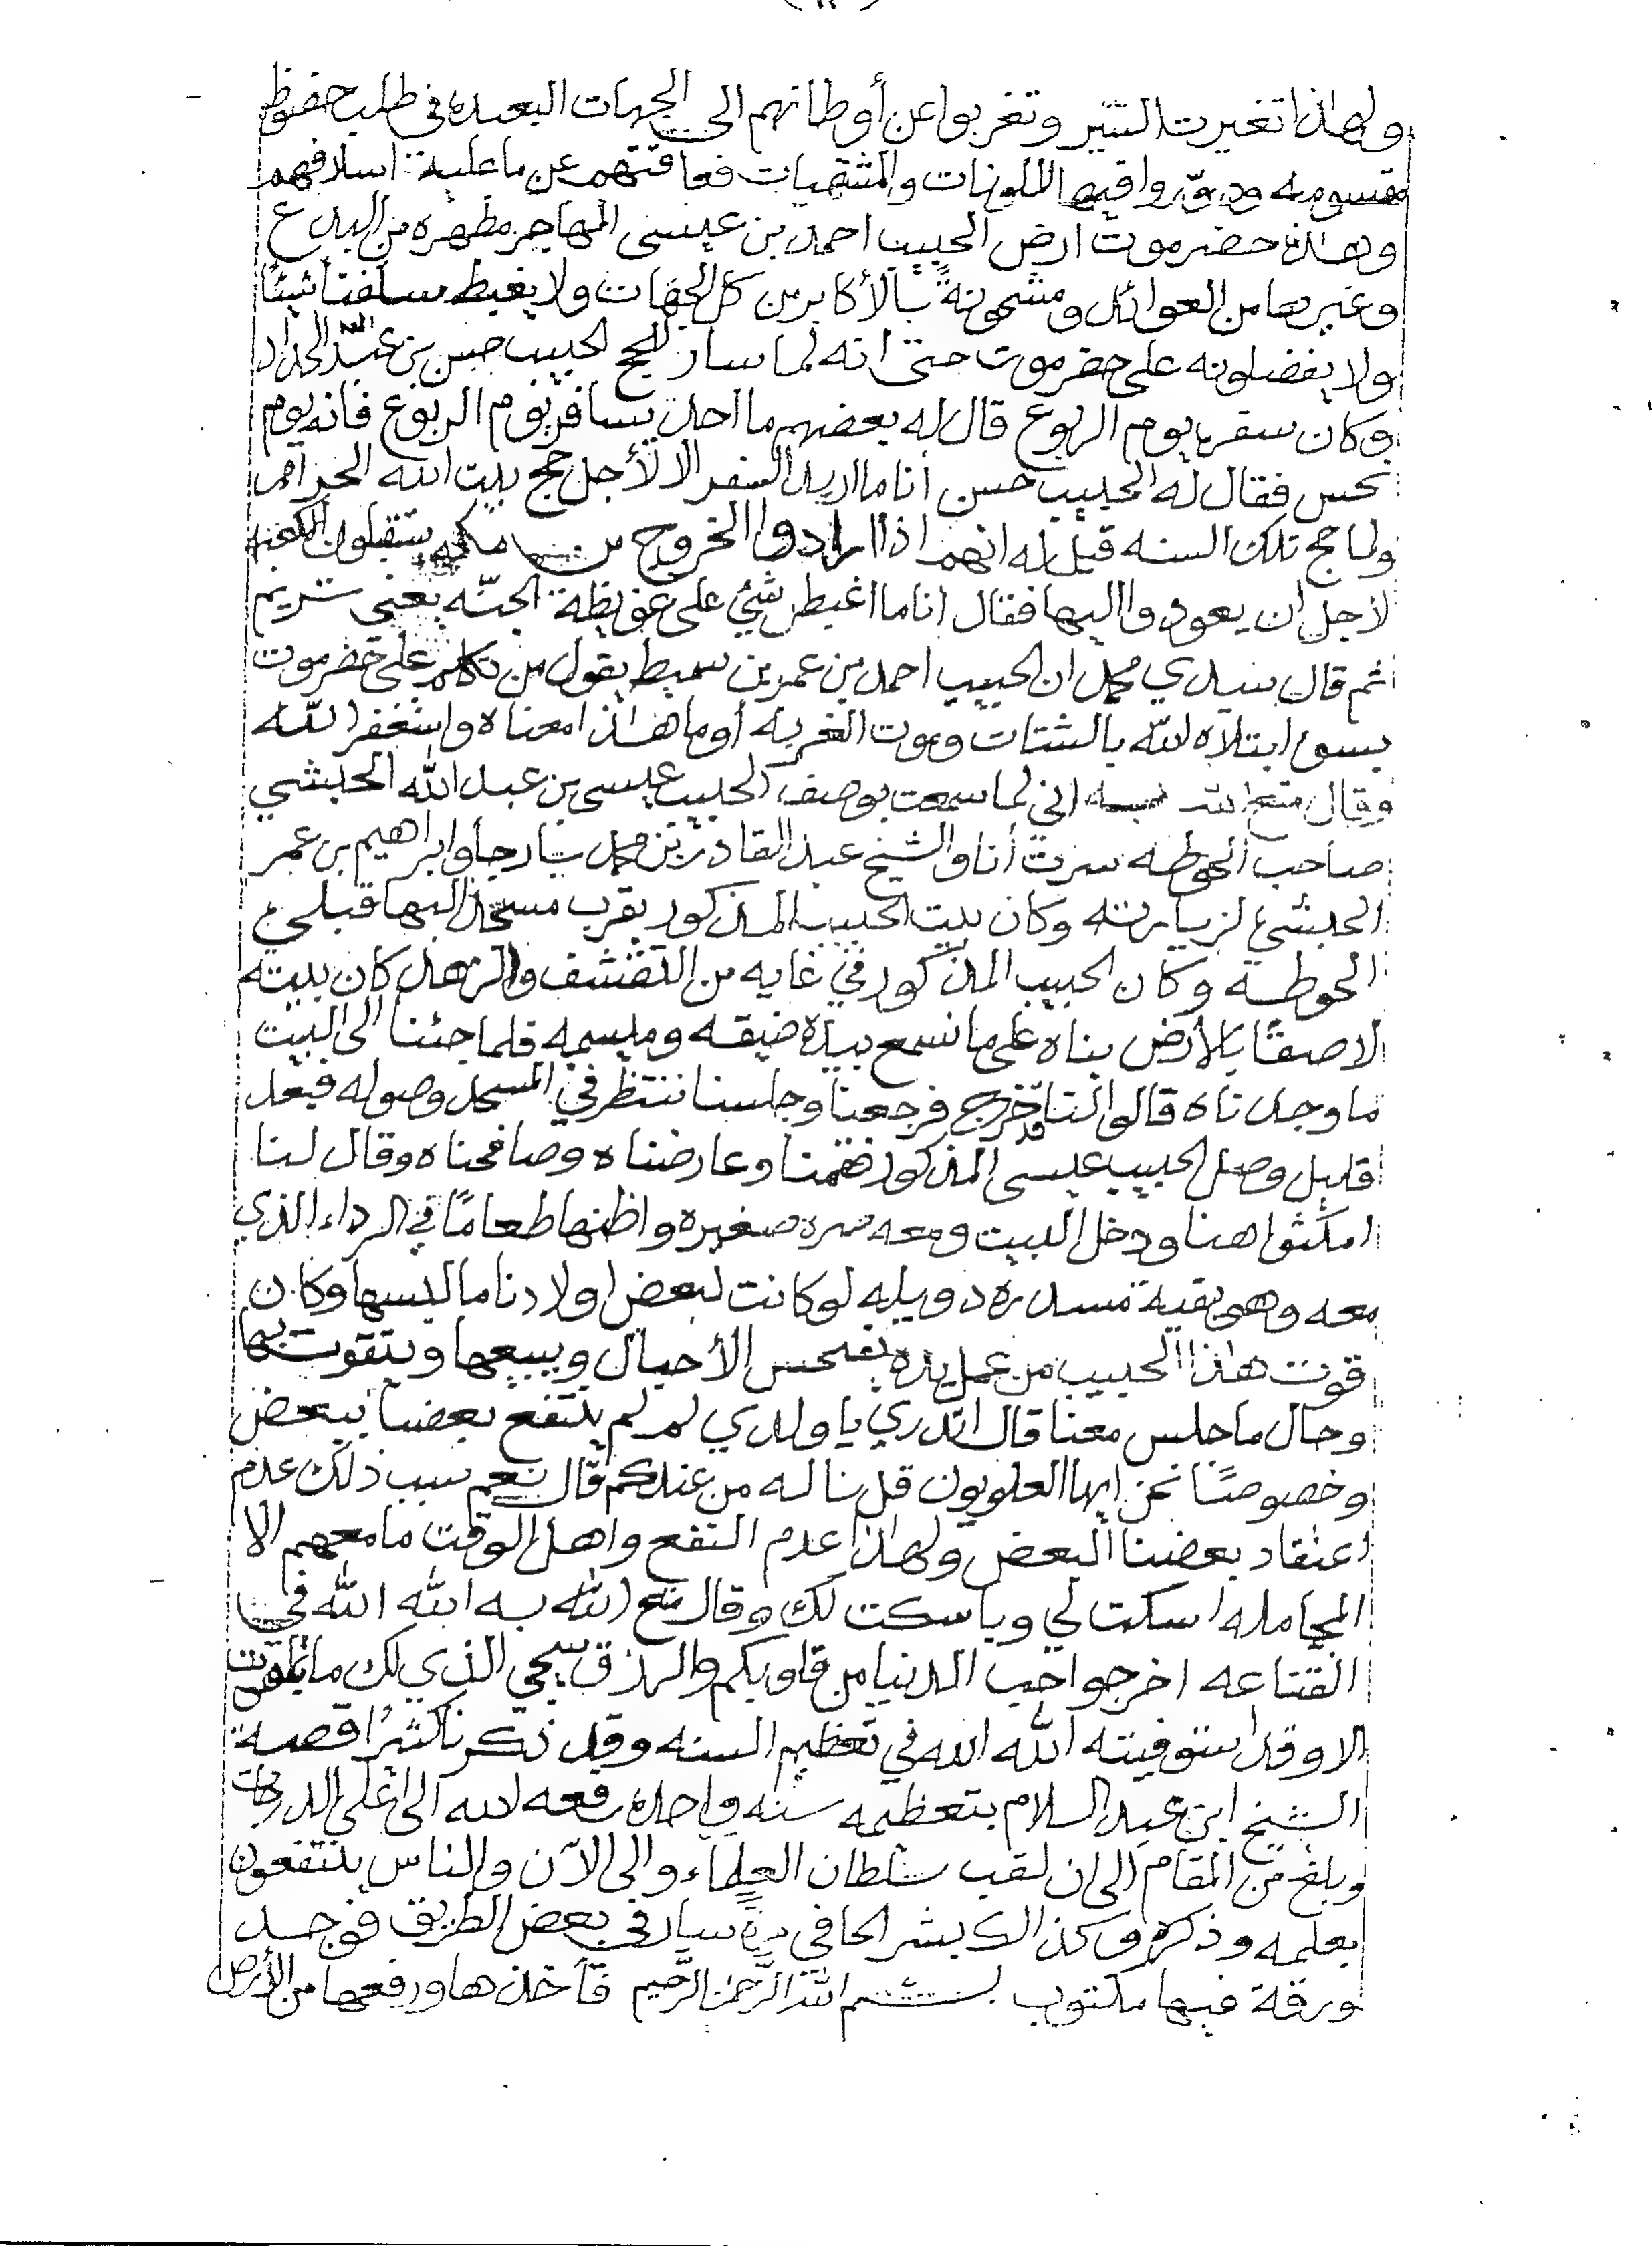 ولهذا تغيرت السير وتغربوا عن أوطانهم الى الجهات البعيده في طلب حظوظ
مقسومه وافيها الملونات والمشتهيات فعاقتهم عن ما عليه اسلافهم
وهاذه حضرموت ارض الحبيب احمد بن عيسى المهاجر مطهره من البدع
وغيرها من العوائل ومشحونةً بالأكابر من كل الجهات ولا يغبط سلفنا شيئًا
ولا يفضلونه على حضرموت حتى انه لما سار للحج الحبيب حسن بن عبدالله الحداد
وكان سفره يوم الربوع قال له بعضهم ما احد يسافر يوم الربوع فانه يوم
نحس فقال له الحبيب حسن أنا ما اريد السفر الا لأجل حج بيت الله الحرام
ولما حج تلك السنه قيل له انهم اذا ارادوا الخروج من مكه يستقبلون الكعبه
لاجل ان يعودوا اليها فقال انا ما اغبط شئ على عويظة الجنّه يعني تريم
ثم قال سيدي محمد ان الحبيب احمد بن عمر بن سميط يقول من تكلم على حضرموت
بسوء ابتلاه الله بالشتات وموت الغربه أو ما هاذا معناه واستغفر الله
وقال متع الله به اني لما سمعت بوصف الحبيب عيسى بن عبد الله الحبشي
صاحب الحوطه سرت أنا والشيخ عبد القادر بن محمد بارجا وابراهيم بن عمر
الحبشي لزيارته وكان بيت الحبيب المذكور بقرب مسجد البها قبلي
الحوطه وكان الحبيب المذكور في غايه من التقشف والزهد كان بيته
لاصقًا بالأرض بناه على ما نسمع بيده ضيقه ومليسمه فلما جئنا الى البيت
ما وجدناه قالوا لنا قد خرج فرجعنا وجلسنا ننتظر في المسجد وصوله فبعد
قليل وصل الحبيب عيسى المذكور فقمنا وعارضناه وصافحناه وقال لنا
امكثوا هنا ودخل البيت ومعه صره صغيره واظنها طعامًا في الرداء الذي
معه وهي بقية مسدره دويله لو كانت لبعض اولادنا ما لبسها وكان
قوت هاذا الحبيب من عمل يده الأحبال ويبيعها ويتقوت بها
وحال ما جلس معنا قال اتدري يا ولدي لم لم ينتفع بعضنا ببعض
وخصوصًا نحن ايها العلويون قلنا له من عندكم قال نعم سبب ذلك عدم
اعتقاد بعضنا البعض ولهاذا عدم النفع واهل الوقت ما معهم الا
المجامله اسكت لي وباسكت لك وقال متع الله به الله الله في
القناعه اخرجوا حب الدنيا من قلوبكم والرزق يجي الذي لك ما تموت
الا وقد استوفيته الله الله في تعظيم السنه وقد ذكرنا كثيرًا قصة
الشيخ ابن عبد السلام بتعظيمه سنه واحده رفعه الله الى اعلى الدرجات
وبلغ من المقام الى ان لقب سلطان العلماء والى الآن والناس ينتفعون
بعلمه وذكره وكذالك بشر الحافي مرةً سار في بعض الطريق فوجد
ورقة فيها مكتوب بسم الله الرحمن الرحيم فأخذها ورفعها من الأرض